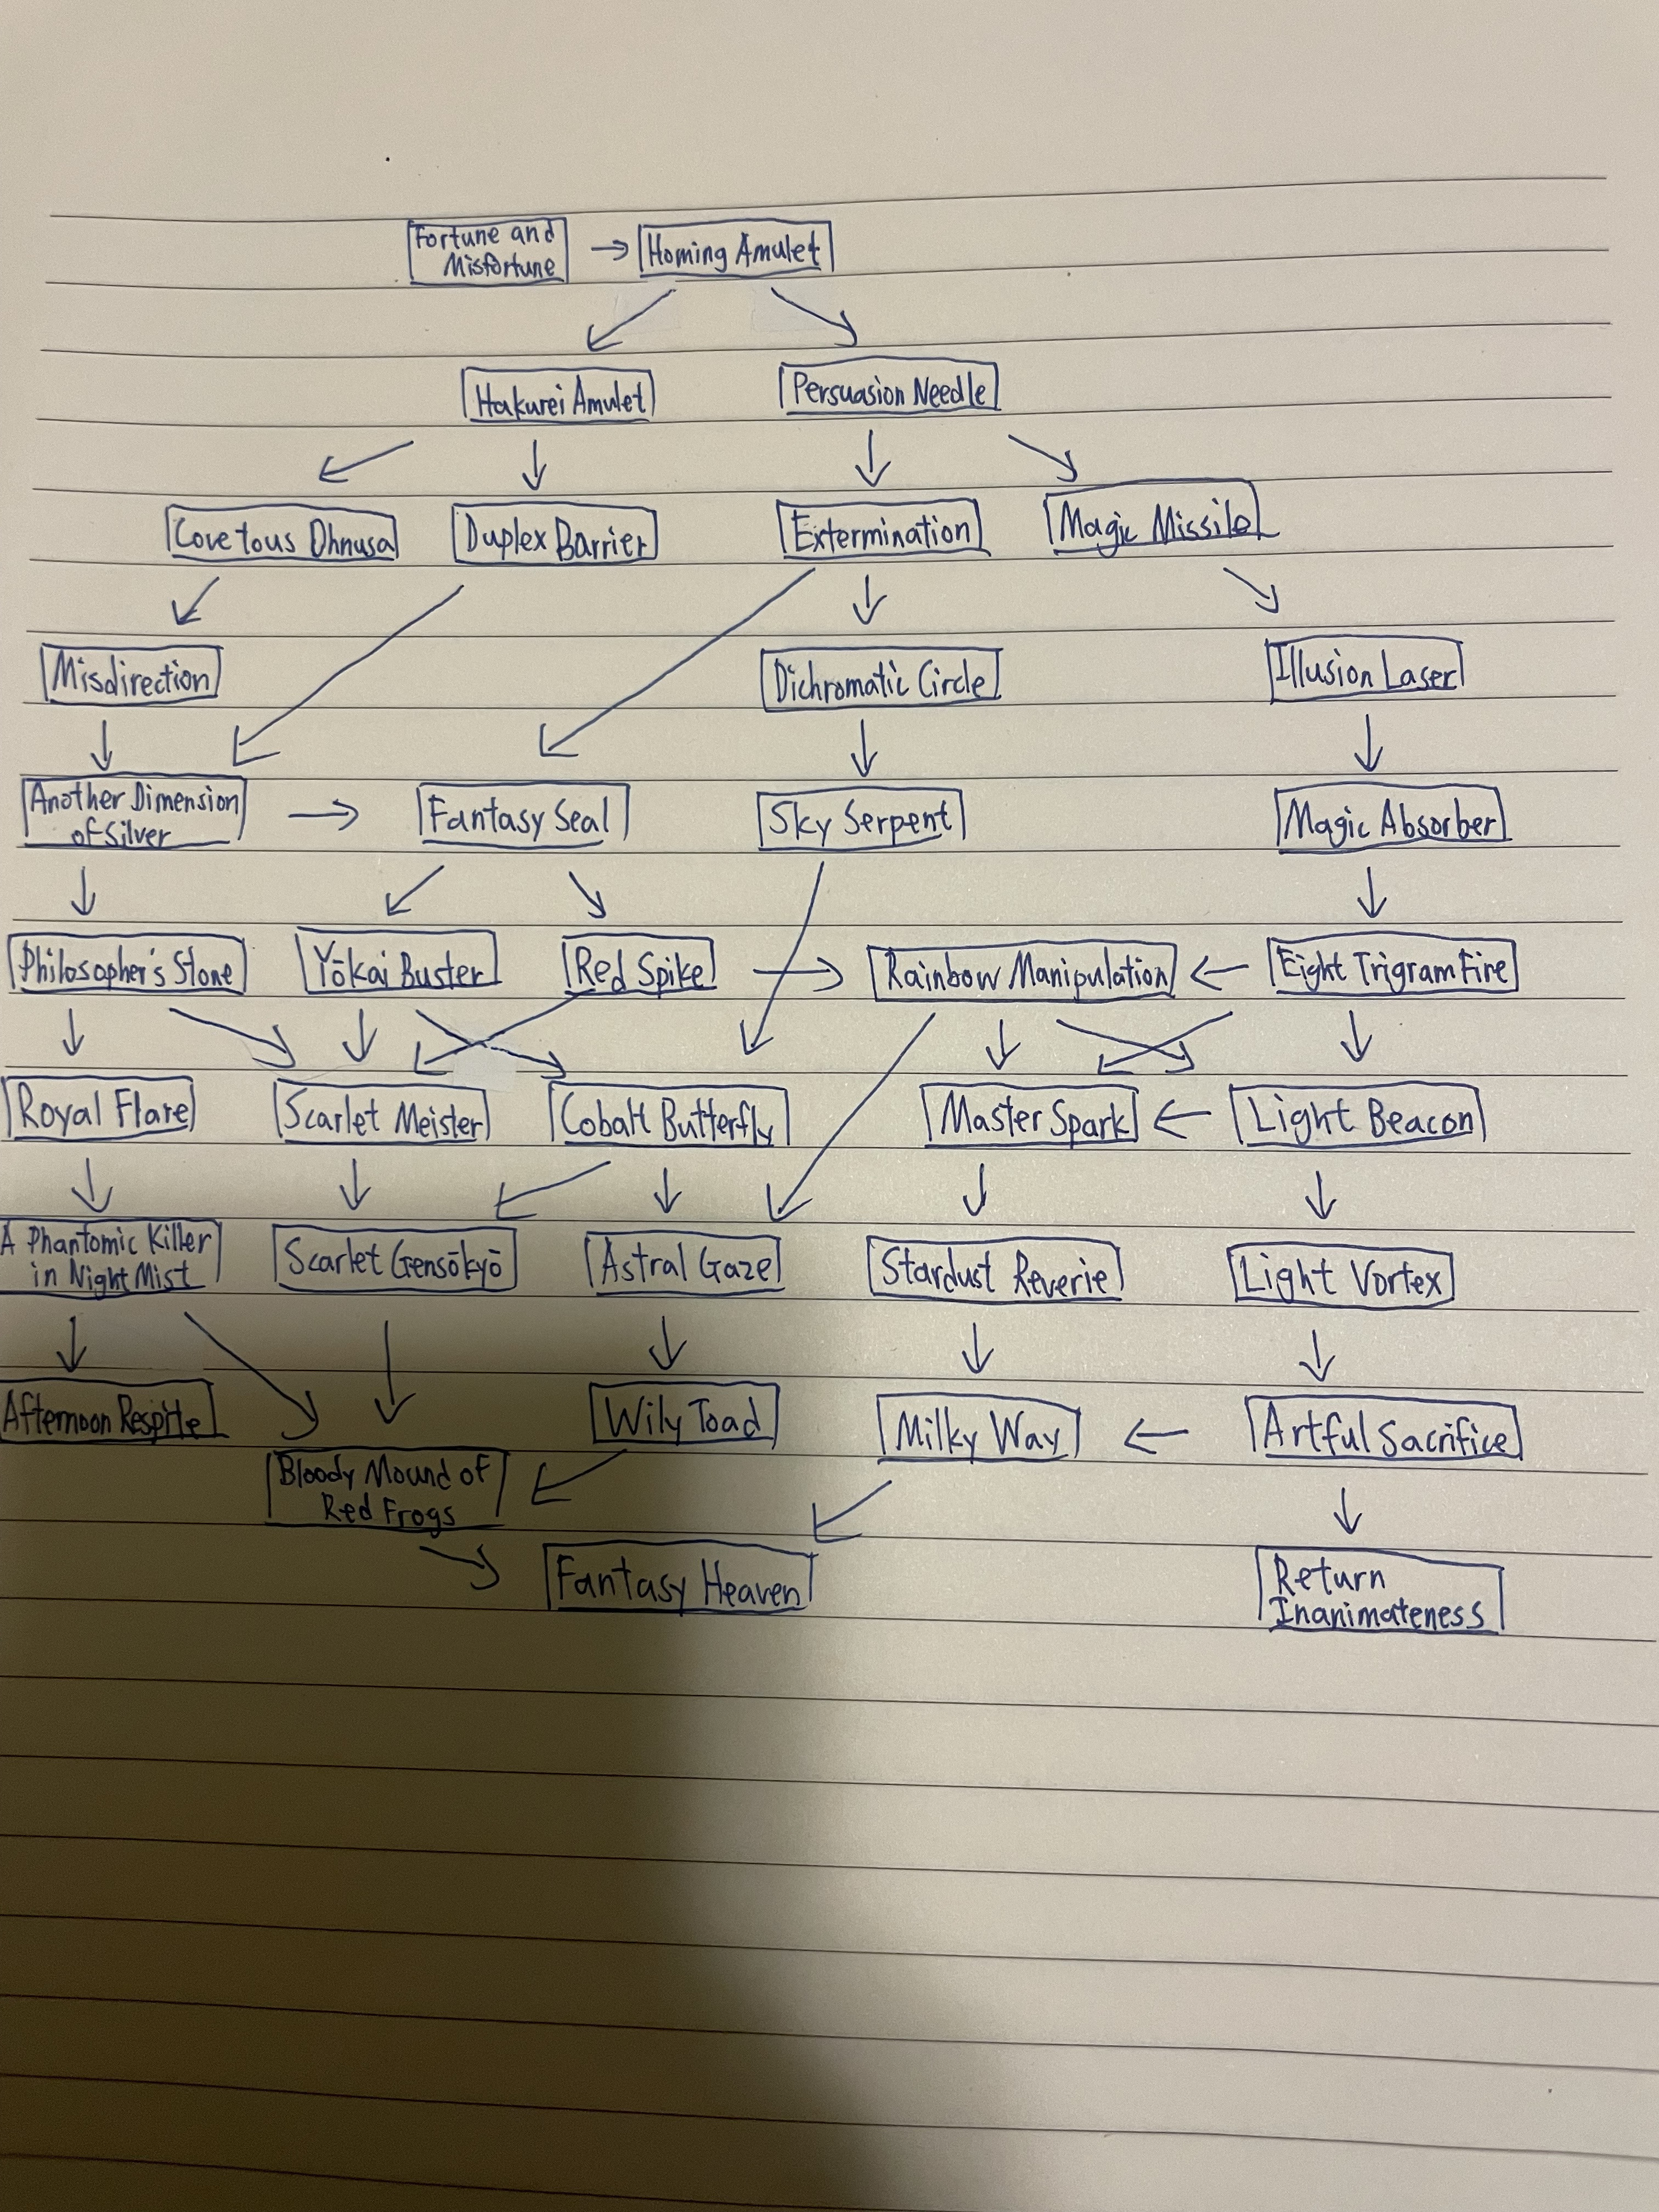 Fortune and
Misfortune
Homing Amulet
Hakurei Amulet
Persuasion Needle
Covetous Ohnusa
Duplex Barrier
Extermination
Magic Missile
Misdirection
Dichromatic Circle
Illusion Laser
Another Dimension
of Silver
Fantasy Seal
Sky Serpent
Magic Absorber
Philosopher's Stone
Yōkai Buster
Red Spike
Rainbow Manipulation
Eight Trigram Fire
Royal Flare
Scarlet Meister
Cobalt Butterfly
Master Spark
Light Beacon
A Phantomic Killer
in Night Mist
Scarlet Gensōkyō
Astral Gaze
Stardust Reverie
Light Vortex
Afternoon Respite
Bloody Mound of
Red Frogs
Wily Toad
Milky Way
Artful Sacrifice
Fantasy Heaven
Return
Inanimateness